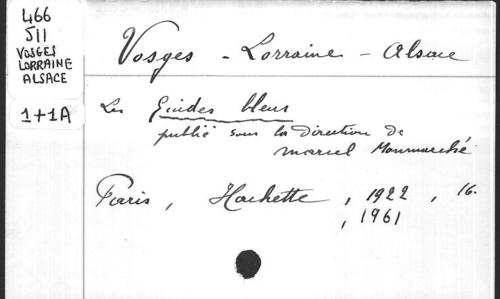 466
511
VOSGES
LORRAINE
ALSACE
1+1A
Vosges - Lorraine - Alsace
Les Guides bleus
publié sous la direction de
Marcel Monmarché
Paris, Hachette, 1922, 16.
, 1961